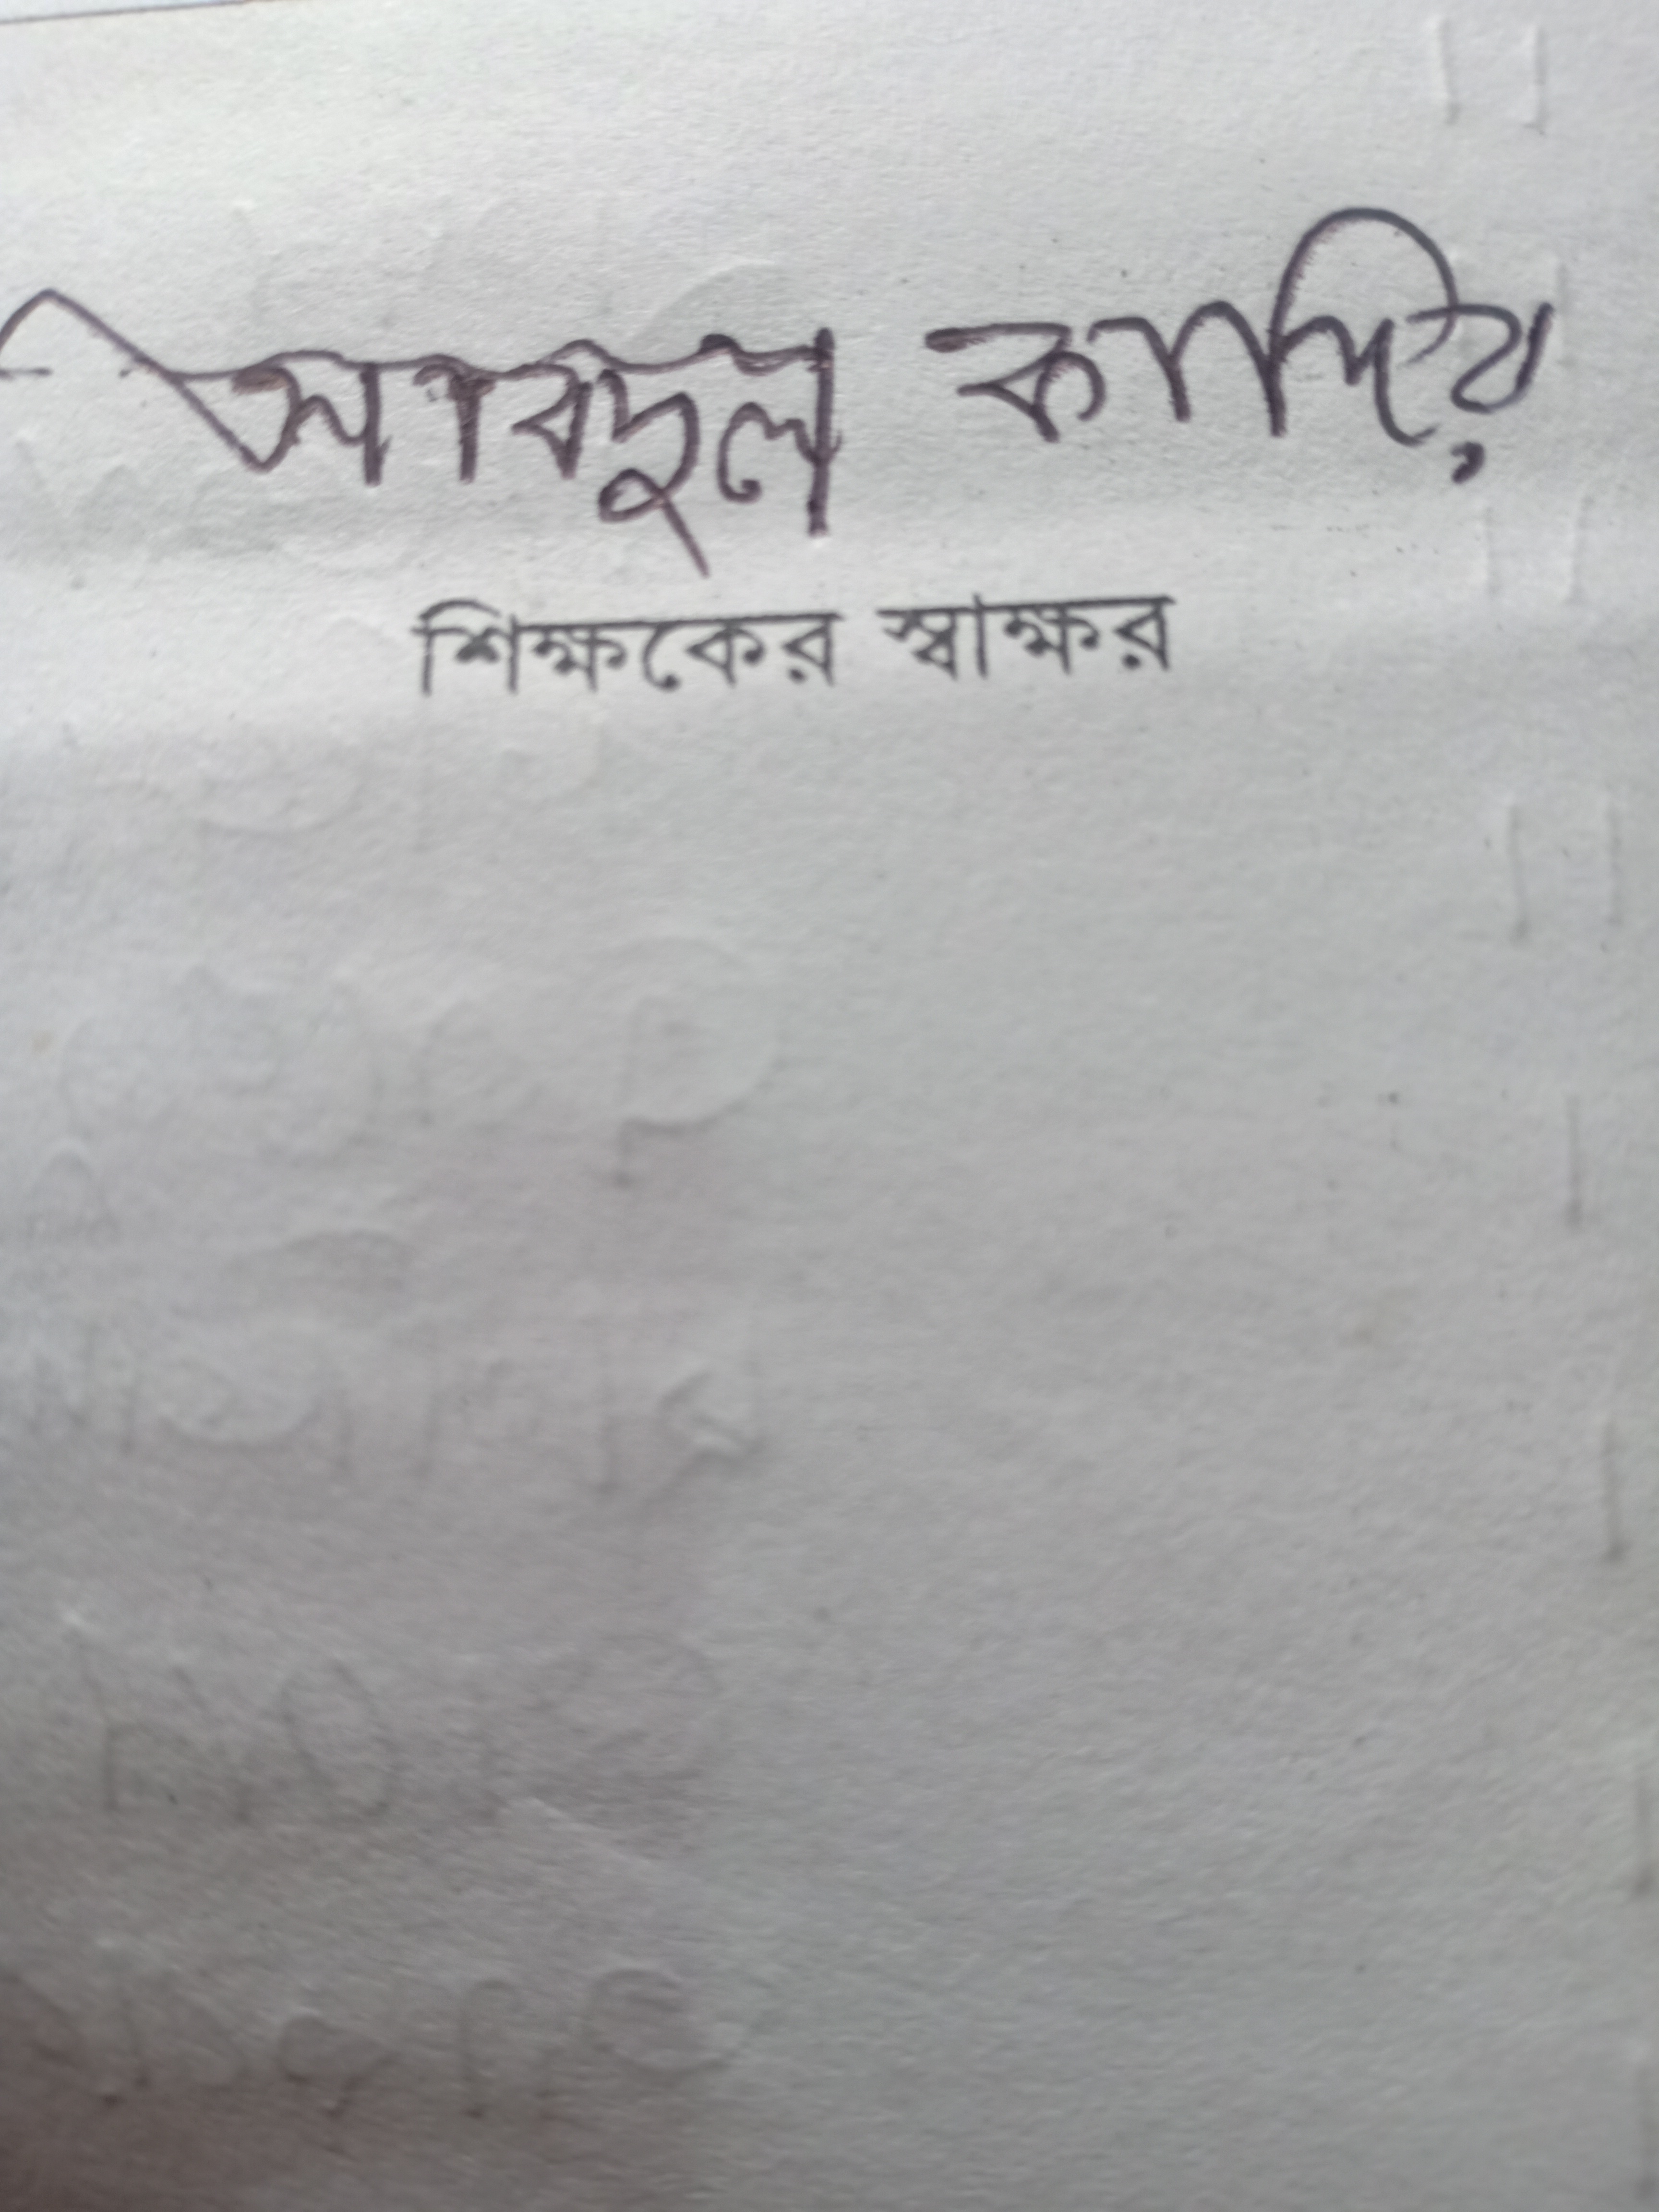 আবদুল কাদির
শিক্ষকের স্বাক্ষর